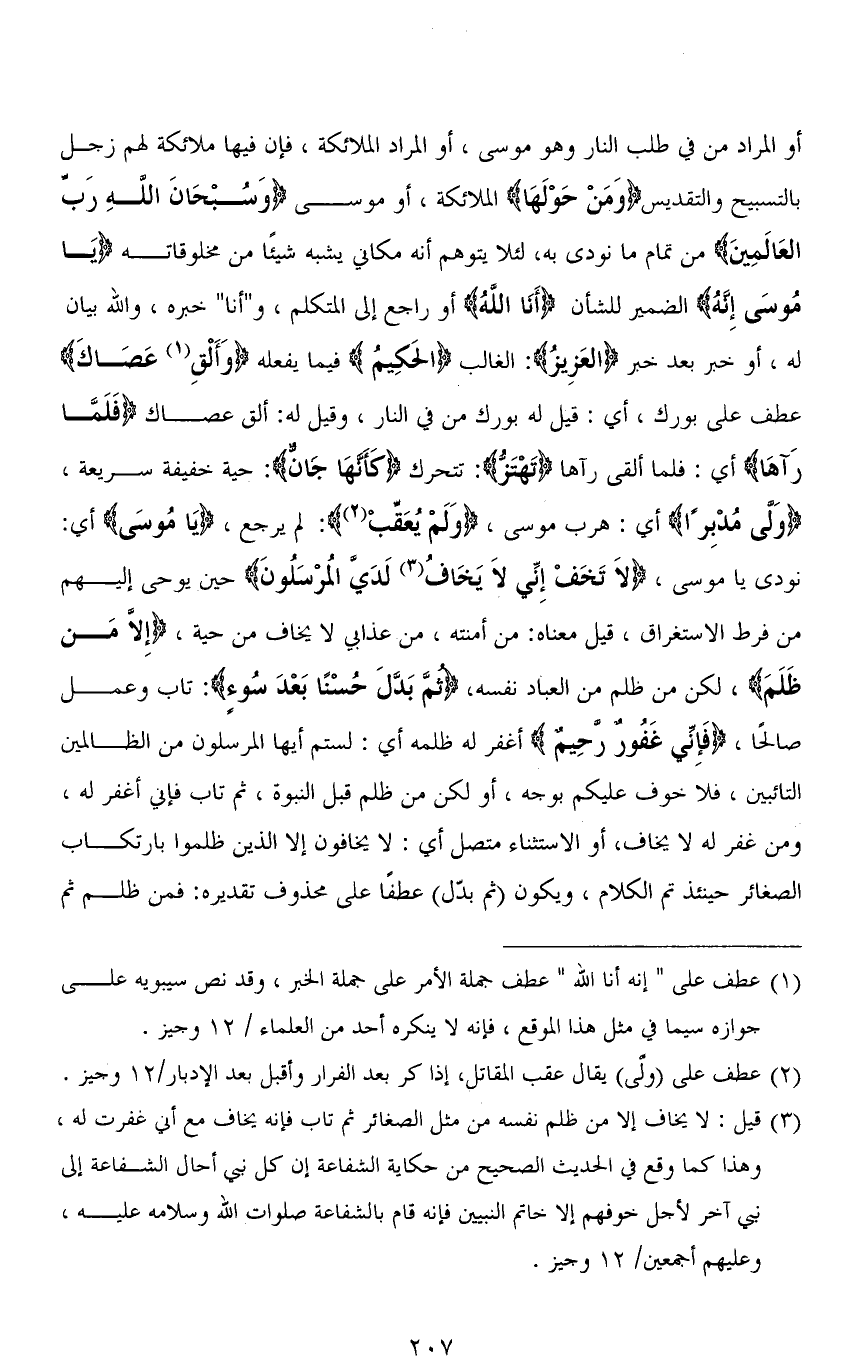 أو المراد من في طلب النار وهو موسى ، أو المراد الملائكة ، فإن فيها ملائكة لهم زجل
بالتسبيح والتقديس﴿وَمَنْ حَوْلَهَا﴾ الملائكة ، أو موسى ﴿وَسُبْحَانَ اللَّهِ رَبِّ
العَالَمِينَ﴾ من تمام ما نودى به، لئلا يتوهم أنه مكاني يشبه شيئًا من مخلوقاته ﴿يَا
مُوسَى إِنَّهُ﴾ الضمير للشأن ﴿أَنَا اللَّهُ﴾ أو راجع إلى المتكلم ، و"أنا" خبره ، والله بيان
له ، أو خبر بعد خبر ﴿العَزِيزُ﴾: الغالب ﴿الحَكِيمُ ﴾ فيما يفعله ﴿وَأَلْقِ(١) عَصَاكَ﴾
عطف على بورك ، أي : قيل له بورك من في النار ، وقيل له: ألق عصاك ﴿فَلَمَّا
رَآهَا﴾ أي : فلما ألقى رآها ﴿تَهْتَزُّ﴾: تتحرك ﴿كَأَنَّهَا جَانٌّ﴾: حية خفيفة سريعة ،
﴿وَلَّى مُدْبِرًا﴾ أي : هرب موسى ، ﴿وَلَمْ يُعَقِّبْ(٢)﴾: لم يرجع ، ﴿يَا مُوسَى﴾ أي:
نودى يا موسى ، ﴿لاَ تَخَفْ إِنِّي لاَ يَخَافُ(٣) لَدَيَّ الْمُرْسَلُونَ﴾ حين يوحى إليهم
من فرط الاستغراق ، قيل معناه: من أمنته ، من عذابي لا يخاف من حية ، ﴿إِلاَّ مَن
ظَلَمَ﴾ ، لكن من ظلم من العباد نفسه، ﴿ثُمَّ بَدَّلَ حُسْنًا بَعْدَ سُوءٍ﴾: تاب وعمل
صالحًا ، ﴿فَإِنِّي غَفُورٌ رَّحِيمٌ ﴾ أغفر له ظلمه أي : لستم أيها المرسلون من الظالمين
التائبين ، فلا خوف عليكم بوجه ، أو لكن من ظلم قبل النبوة ، ثم تاب فإني أغفر له ،
ومن غفر له لا يخاف، أو الاستثناء متصل أي : لا يخافون إلا الذين ظلموا بارتكاب
الصغائر حينئذ تم الكلام ، ويكون (ثم بدّل) عطفًا على محذوف تقديره: فمن ظلم ثم
(١) عطف على " إنه أنا الله " عطف جملة الأمر على جملة الخبر ، وقد نص سيبويه على
جوازه سيما في مثل هذا الموقع ، فإنه لا ينكره أحد من العلماء / ١٢ وجيز .
(٢) عطف على (ولّى) يقال عقب المقاتل، إذا كر بعد الفرار وأقبل بعد الإدبار/١٢ وجيز .
(٣) قيل : لا يخاف إلا من ظلم نفسه من مثل الصغائر ثم تاب فإنه يخاف مع أني غفرت له ،
وهذا كما وقع في الحديث الصحيح من حكاية الشفاعة إن كل نبي أحال الشفاعة إلى
نبي آخر لأجل خوفهم إلا خاتم النبيين فإنه قام بالشفاعة صلوات الله وسلامه عليه ،
وعليهم أجمعين/ ١٢ وجيز .
٢٠٧